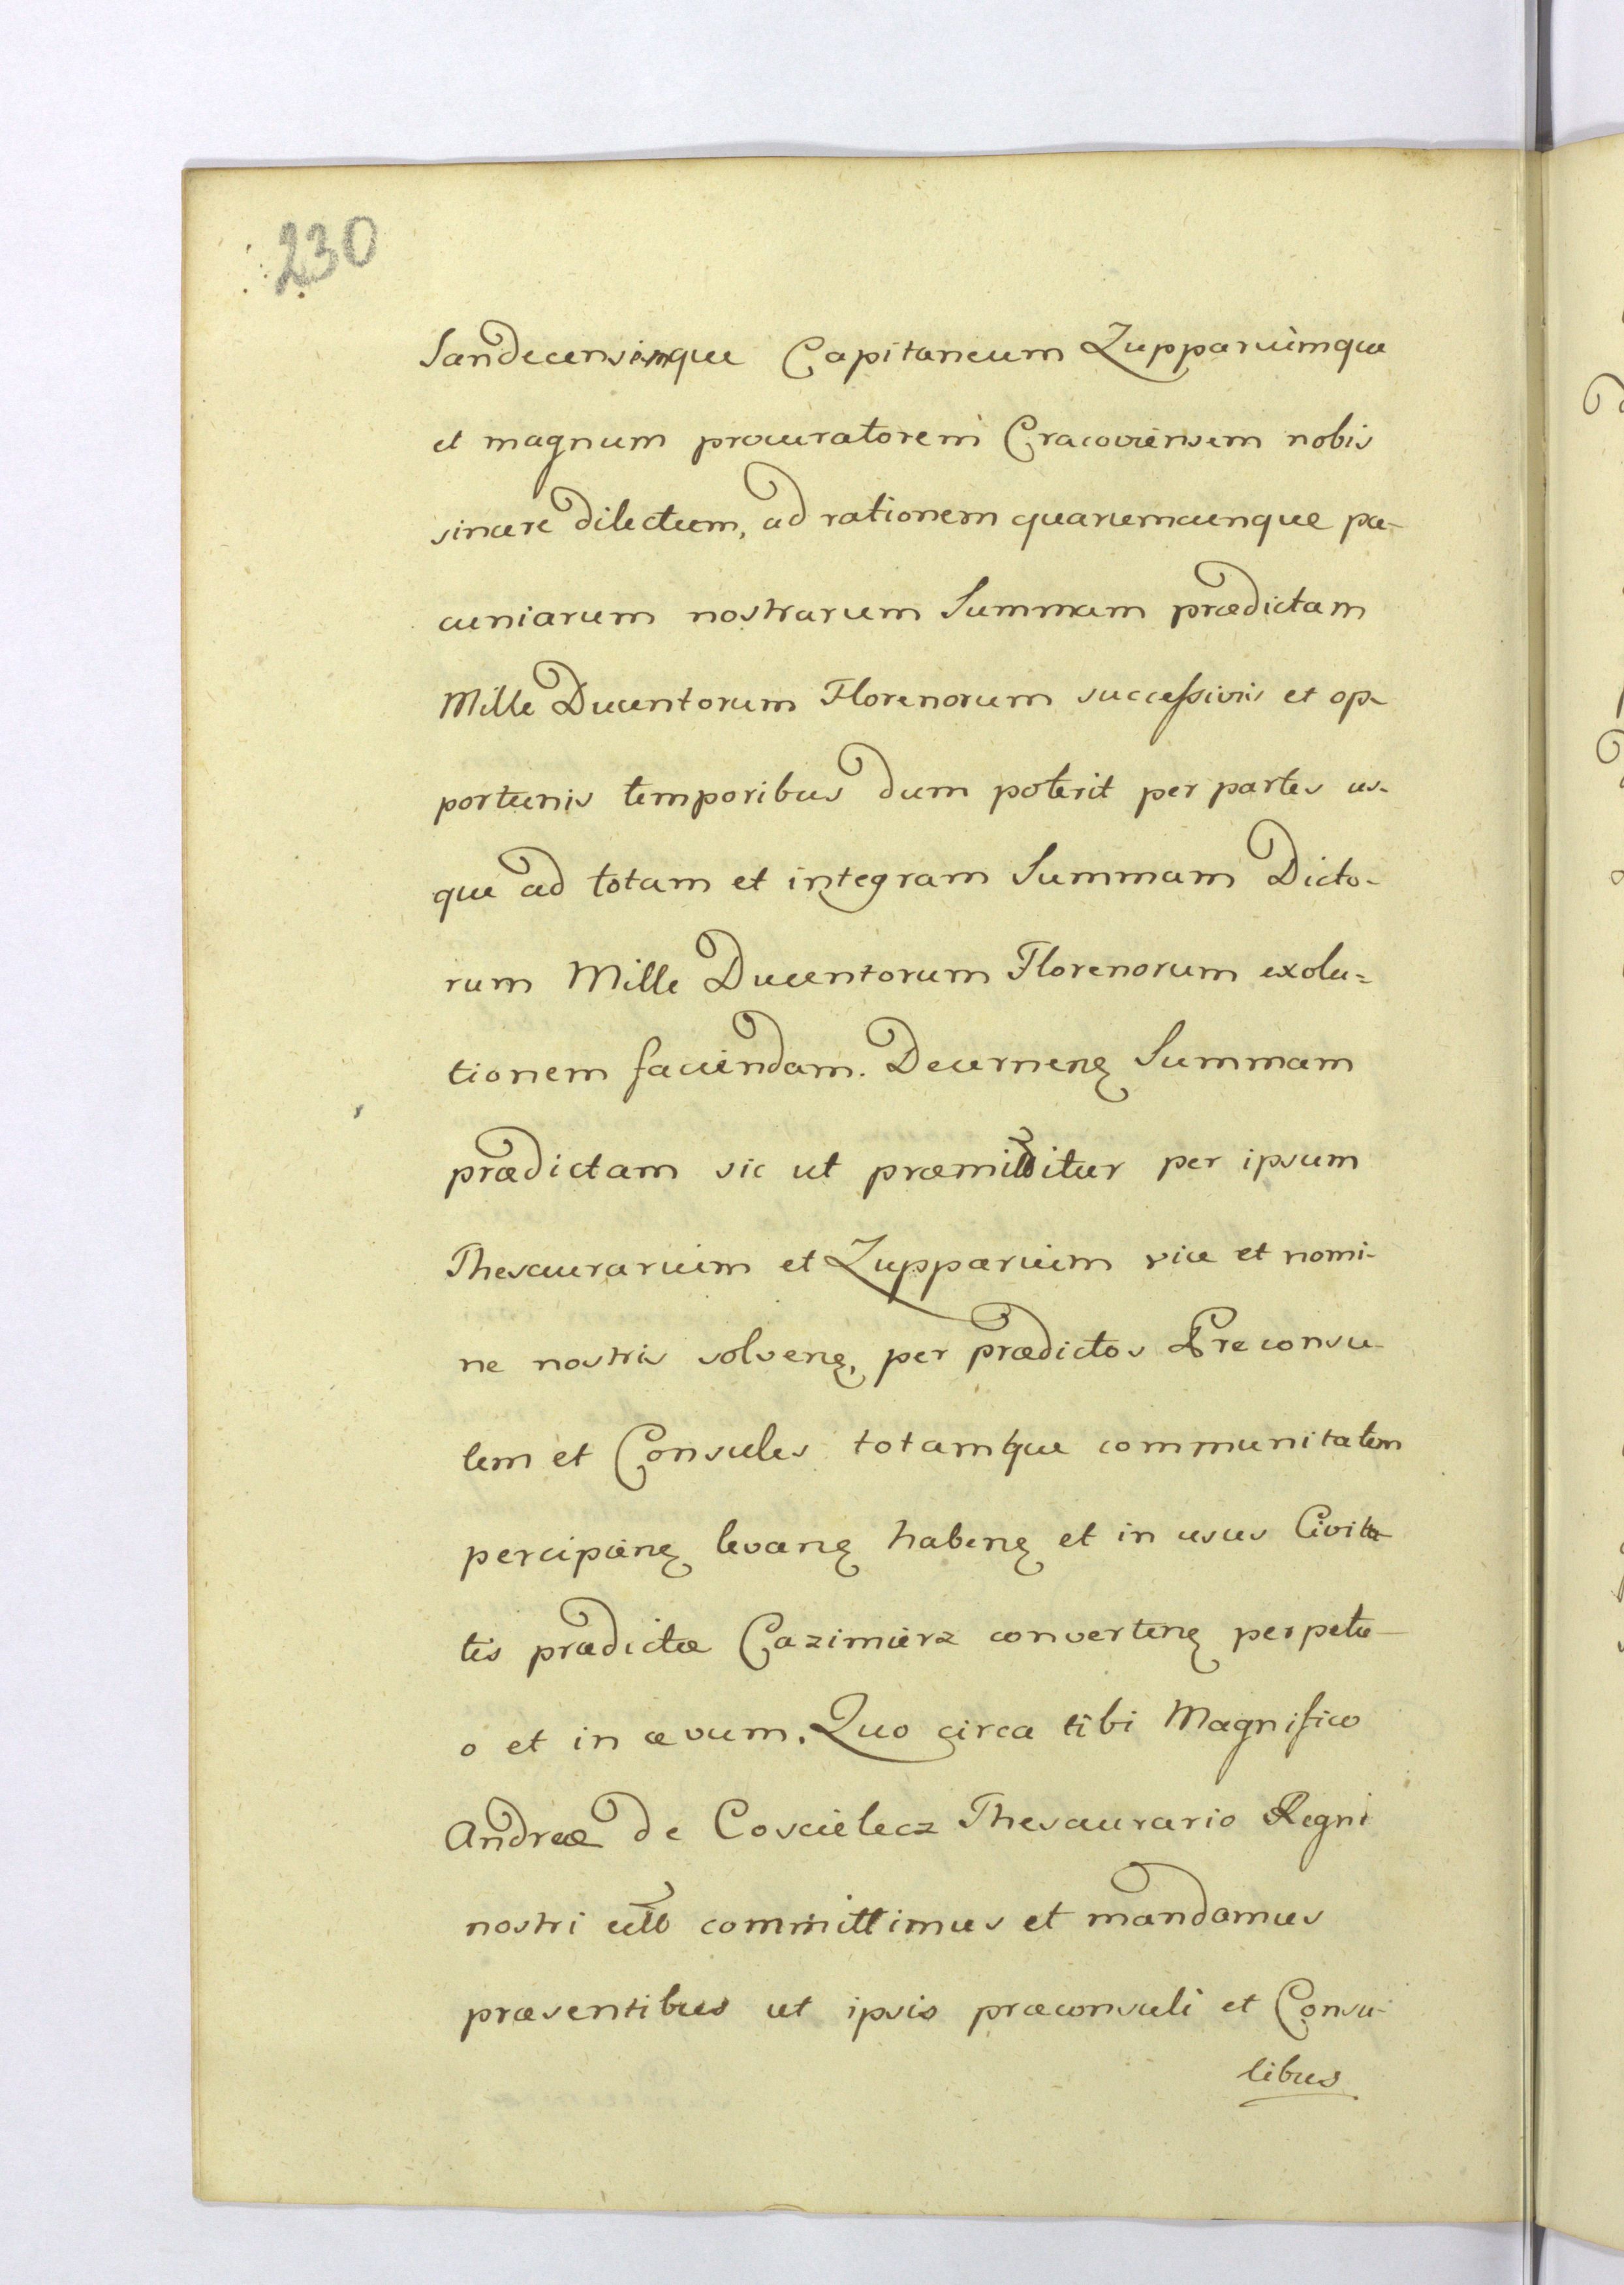 230
Sandecensemque Capitaneum Zuppariumque
et magnum procuratorem Cracoviensem nobis
sincere dilectum, ad rationem quarumcunque pe-
cuniarum nostrarum Summam prædictam
Mille Ducentorum Florenorum successivis et op-
portunis temporibus dum poterit per partes us-
que ad totam et integram Summam Dicto-
rum Mille Ducentorum Florenorum exolu=
tionem faciendam. Decernenȩ Summam
prædictam sic ut præmittitur per ipsum
Thesaurarium et Zupparium vice et nomi-
ne nostris solvenȩ, per prædictos Preconsu-
lem et Consules totamque communitatem
percipienȩ levanȩ habenȩ et in usus Civita-
tis prædictæ Cazimierz convertenȩ perpetu-
o et in ævum. Quo circa tibi Magnifico
Andreæ de Coscielecz Thesaurario Regni
nostri committimus et mandamus
præsentibus ut ipsis præconsuli et Consu-
libus